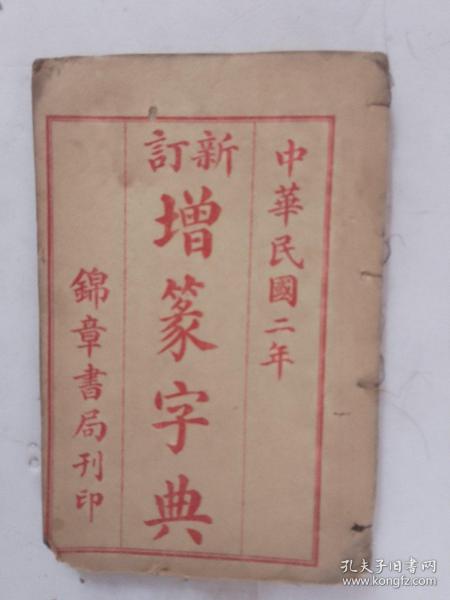 中華民國二年
新訂
增篆字典
錦章書局刊印
孔夫子旧书网
www.kongfz.com